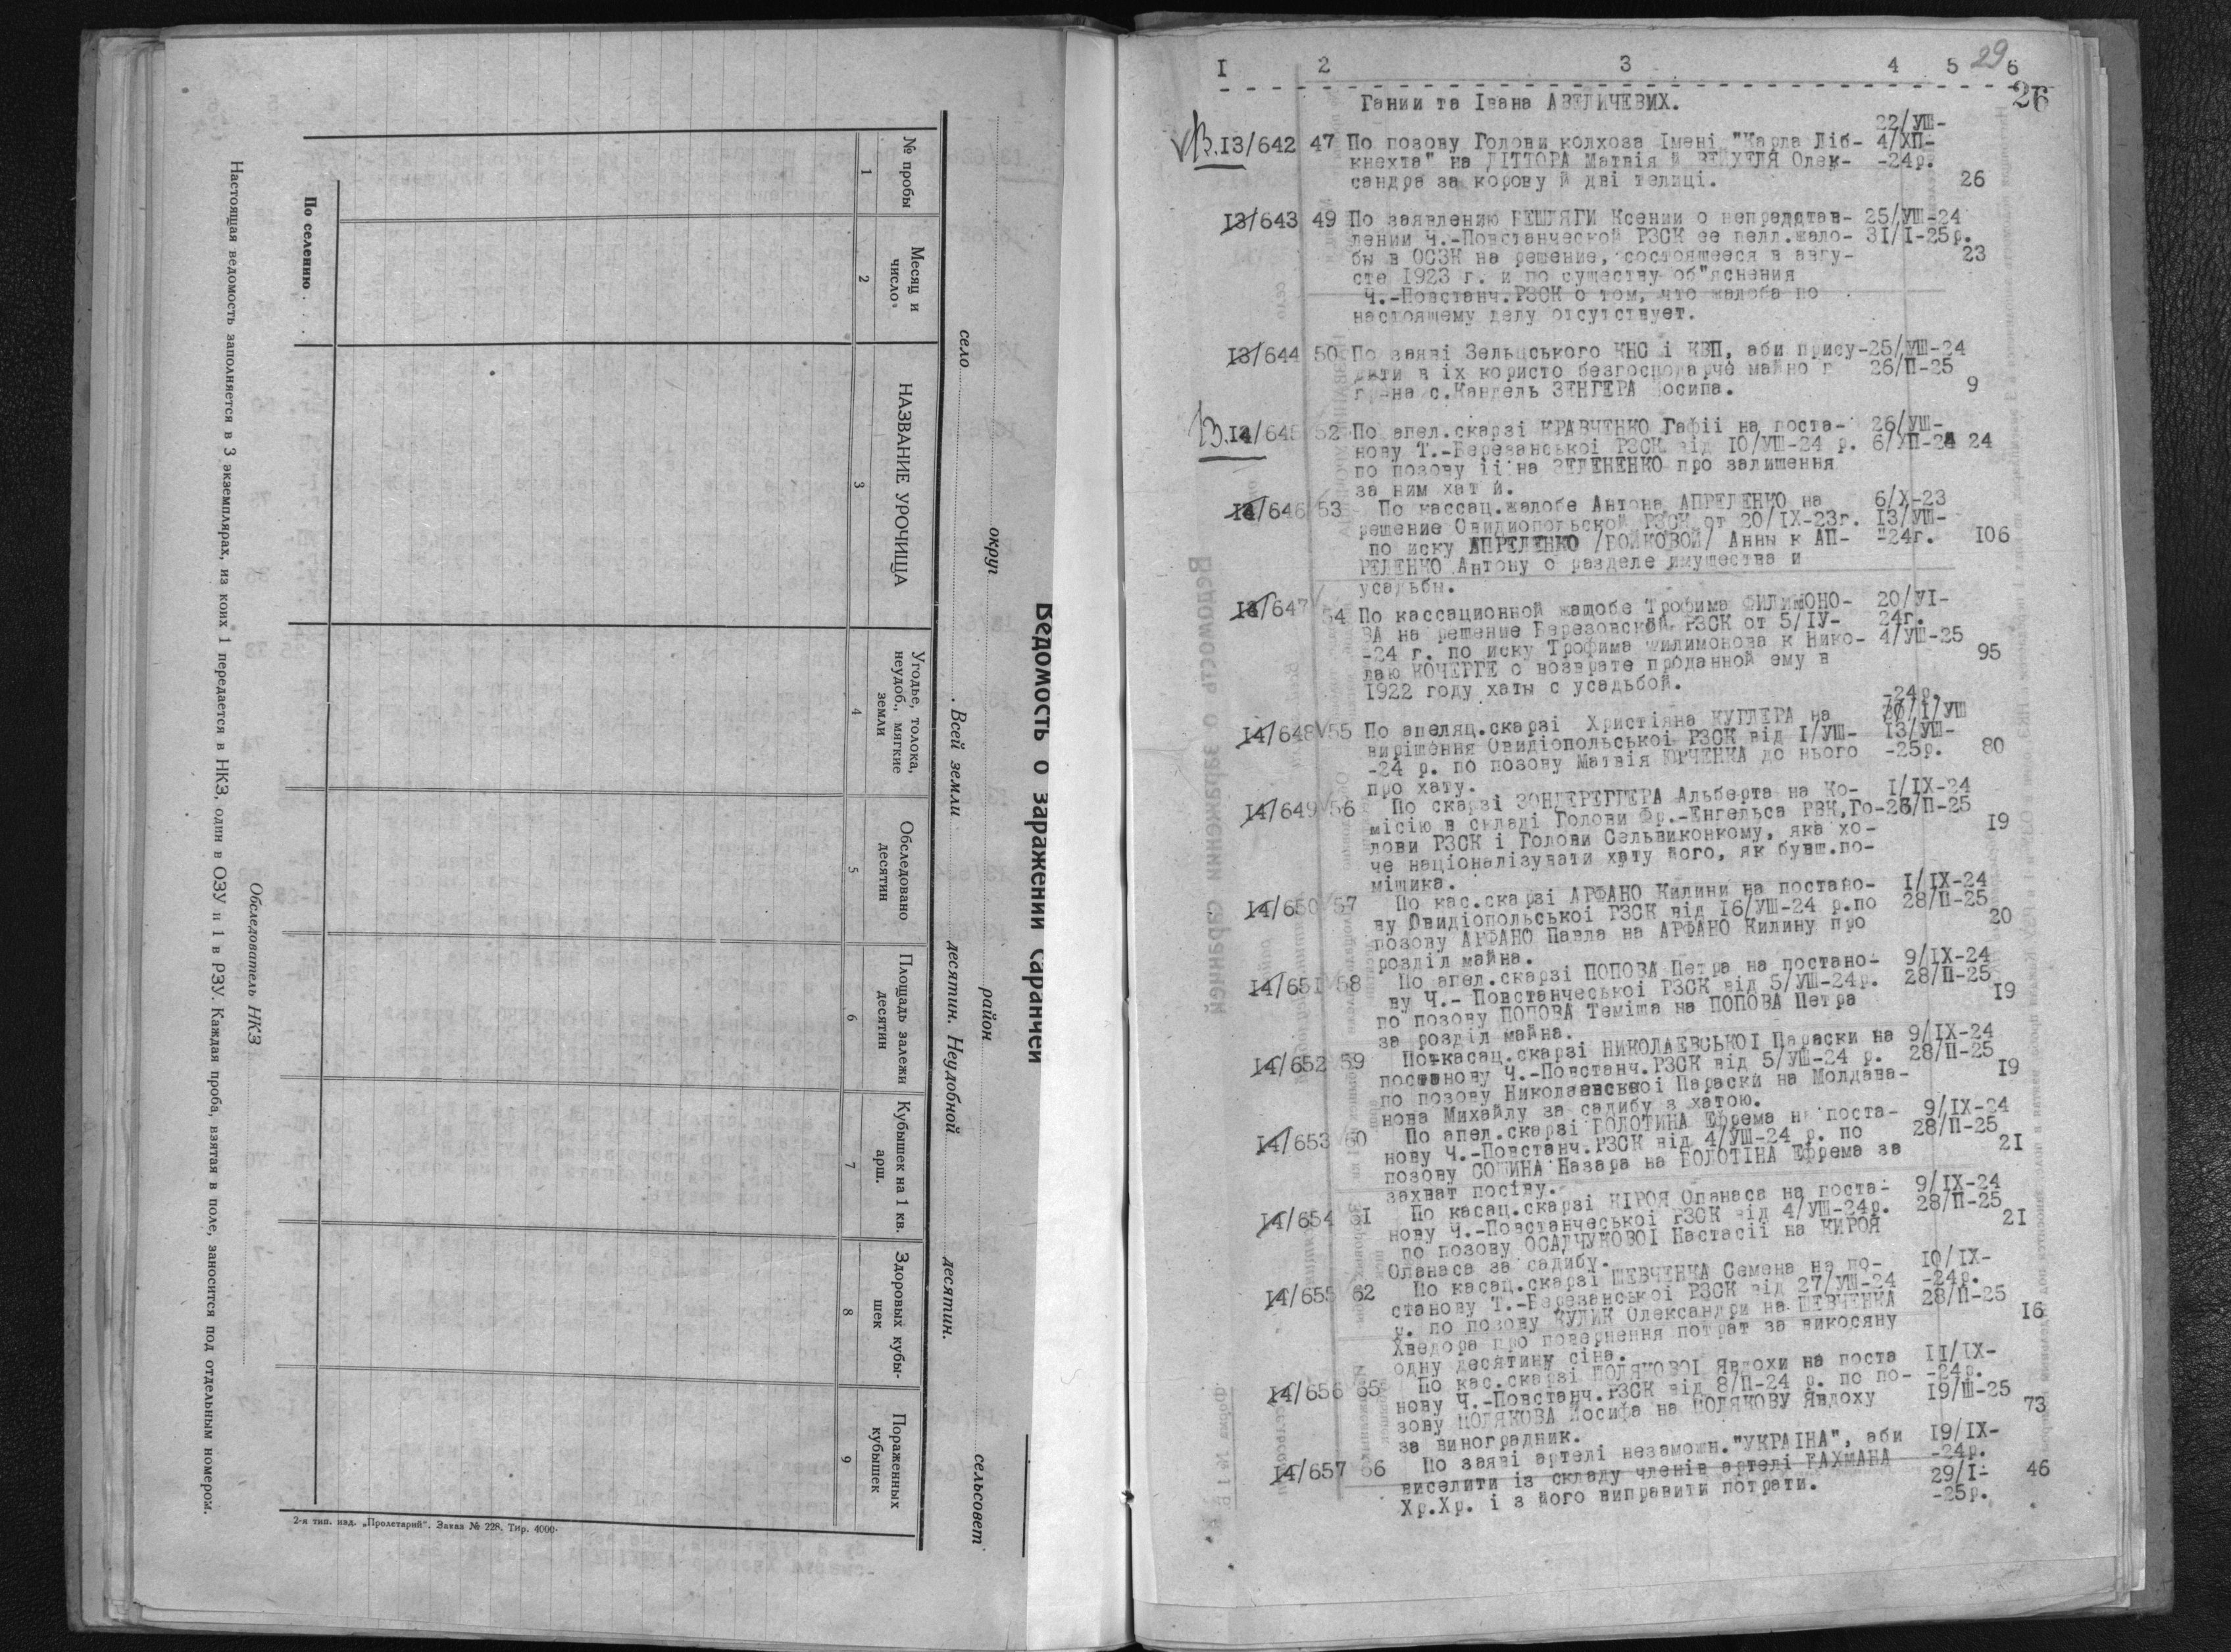 Ведомость о заражении саранчей
округ район сельсовет
село Всей земли десятин. Неудобной десятин.
№ пробы
Месяц и число
НАЗВАНИЕ УРОЧИЩА
Угодье, толока, неудоб., мягкие земли
Обследовано десятин
Площадь залежи десятин
Кубышек на 1 кв. арш.
Здоровых кубышек
Пораженных кубышек
1 2 3 4 5 6 7 8 9
По селению
Обследователь НКЗ
Настоящая ведомость заполняется в 3 экземплярах, из коих 1 передается в НКЗ, один в ОЗУ и 1 в РЗУ. Каждая проба, взятая в поле, заносится под отдельным номером.
2-я тип. изд. „Пролетарий“. Заказ № 228. Тир. 4000·
29
I 2 3 4 5 6
26
Гании та Івана АВЕЛИЧЕВИХ.
22/УШ-
13/642 47 По позову Голови колхоза Імені "Карла Ліб- 4/ХП-
кнехта" на ДІТТОРА Матвія й ВЕЙХЕЛЯ Олек- -24р.
сандра за корову й дві телиці. 26
13/643 49 По заявлению ВЕШЛЯГИ Ксении о непредстав- 25/УШ-24
лении Ч.-Повстанческой РЗСК ее пелл.жало- 31/I-25р.
бы в ОСЗК на решение, состоящееся в авгу- 23
сте 1923 г. и по существу об"яснения
Ч.-Повстанч.РЗСК о том, что жалоба по
настоящему делу отсутствует.
13/644 50 По заяві Зельцського КНС і КВП, аби прису- 25/УШ-24
дити в іх користо безгосподарче майно г 26/П-25
гр-на с.Кандель ЗЕНГЕРА Йосипа. 9
14/645 52 По апел.скарзі КРАВЧЕНКО Гафіі на поста- 26/УШ-
нову Т.-Березанськоі РЗСК від 10/УШ-24 р. 6/ХП-24 24
по позову іі на ЗЕЛЕНЕНКО про залишення
за ним хат й.
14/646 53 По кассац.жалобе Антона АПРЕЛЕНКО на 6/Х-23
решение Овидиопольской РЗСК от 20/IX-23г. 13/УШ-
по иску АПРЕЛЕНКО /БОЙКОВОЙ/ Анны к АП- -24г. 106
РЕЛЕНКО Антону о разделе имущества и
усадьбы.
14/647 54 По кассационной жалобе Трофима ФИЛИМОНО- 20/УI-
ВА на решение Березовской РЗСК от 5/IУ- 24г.
-24 г. по иску Трофима Филимонова к Нико- 4/УШ-25
лаю КОЧЕРГЕ о возврате проданной ему в 95
1922 году хаты с усадьбой.
-24р.
14/648 55 По апеляц.скарзі Христіяна КУГЛЕРА на /УШ
вирішення Овидіопольськоі РЗСК від I/УШ- 13/УШ-
-24 р. по позову Матвія ЮРЧЕНКА до нього -25р. 80
про хату.
14/649 56 По скарзі ЗОНДЕРЕГГЕРА Альберта на Ко- I/IX-24
місію в складі Голови Фр.-Енгельса РВК,Го- 28/П-25
лови РЗСК і Голови Сельвиконкому, яка хо- 19
че націоналізувати хату його, як бувш.по-
міщика.
14/650 57 По кас.скарзі АРФАНО Килини на постано- I/IX-24
ву Овидіопольськоі РЗСК від 16/УШ-24 р.по 28/П-25
позову АРФАНО Павла на АРФАНО Килину про 20
розділ майна.
14/651 58 По апел.скарзі ПОПОВА Петра на постано- 9/IX-24
ву Ч.- Повстанческоі РЗСК від 5/УШ-24р. 28/П-25
по позову ПОПОВА Теміша на ПОПОВА Петра 19
за розділ майна.
14/652 59 По касац.скарзі НИКОЛАЕВСЬКОІ Параски на 9/IX-24
постанову Ч.-Повстанч.РЗСК від 5/УШ-24 р. 28/П-25
по позову Николаевськоі Параски на Молдава- 19
нова Михайлу за садибу з хатою.
14/653 60 По апел.скарзі БОЛОТИНА Ефрема на поста- 9/IX-24
нову Ч.-Повстанч.РЗСК від 4/УШ-24 р. по 28/П-25
позову СОШИНА Назара на БОЛОТІНА Ефрема за 21
захват посіву.
14/654 61 По касац.скарзі КІРОЯ Опанаса на поста- 9/IX-24
нову Ч.-Повстанческоі РЗСК від 4/УШ-24р. 28/П-25
по позову ОСАДЧУКОВОІ Настасіі на КИРОЯ 21
Опанаса за садибу.
14/655 62 По касац.скарзі ШЕВЧЕНКА Семена на по- 10/IX-
станову Т.-Березанськоі РЗСК від 27/УШ-24 -24р.
р. по позову КУЛИК Олександри на ШЕВЧЕНКА 28/П-25
Хведора про повернення потрат за викосяну 16
одну десятину сіна.
14/656 65 По кас.скарзі ПОЛЯКОВОІ Явдохи на поста 11/IX-
нову Ч.-Повстанч.РЗСК від 8/П-24 р. по по- -24р.
зову ПОЛЯКОВА Йосифа на ПОЛЯКОВУ Явдоху 19/Ш-25
за виноградник. 73
14/657 66 По заяві артелі незаможн."УКРАІНА", аби 19/IX-
виселити із складу членів артелі БАХМАНА -24р.
Хр.Хр. і з його виправити потрати. 29/I- 46
-25р.